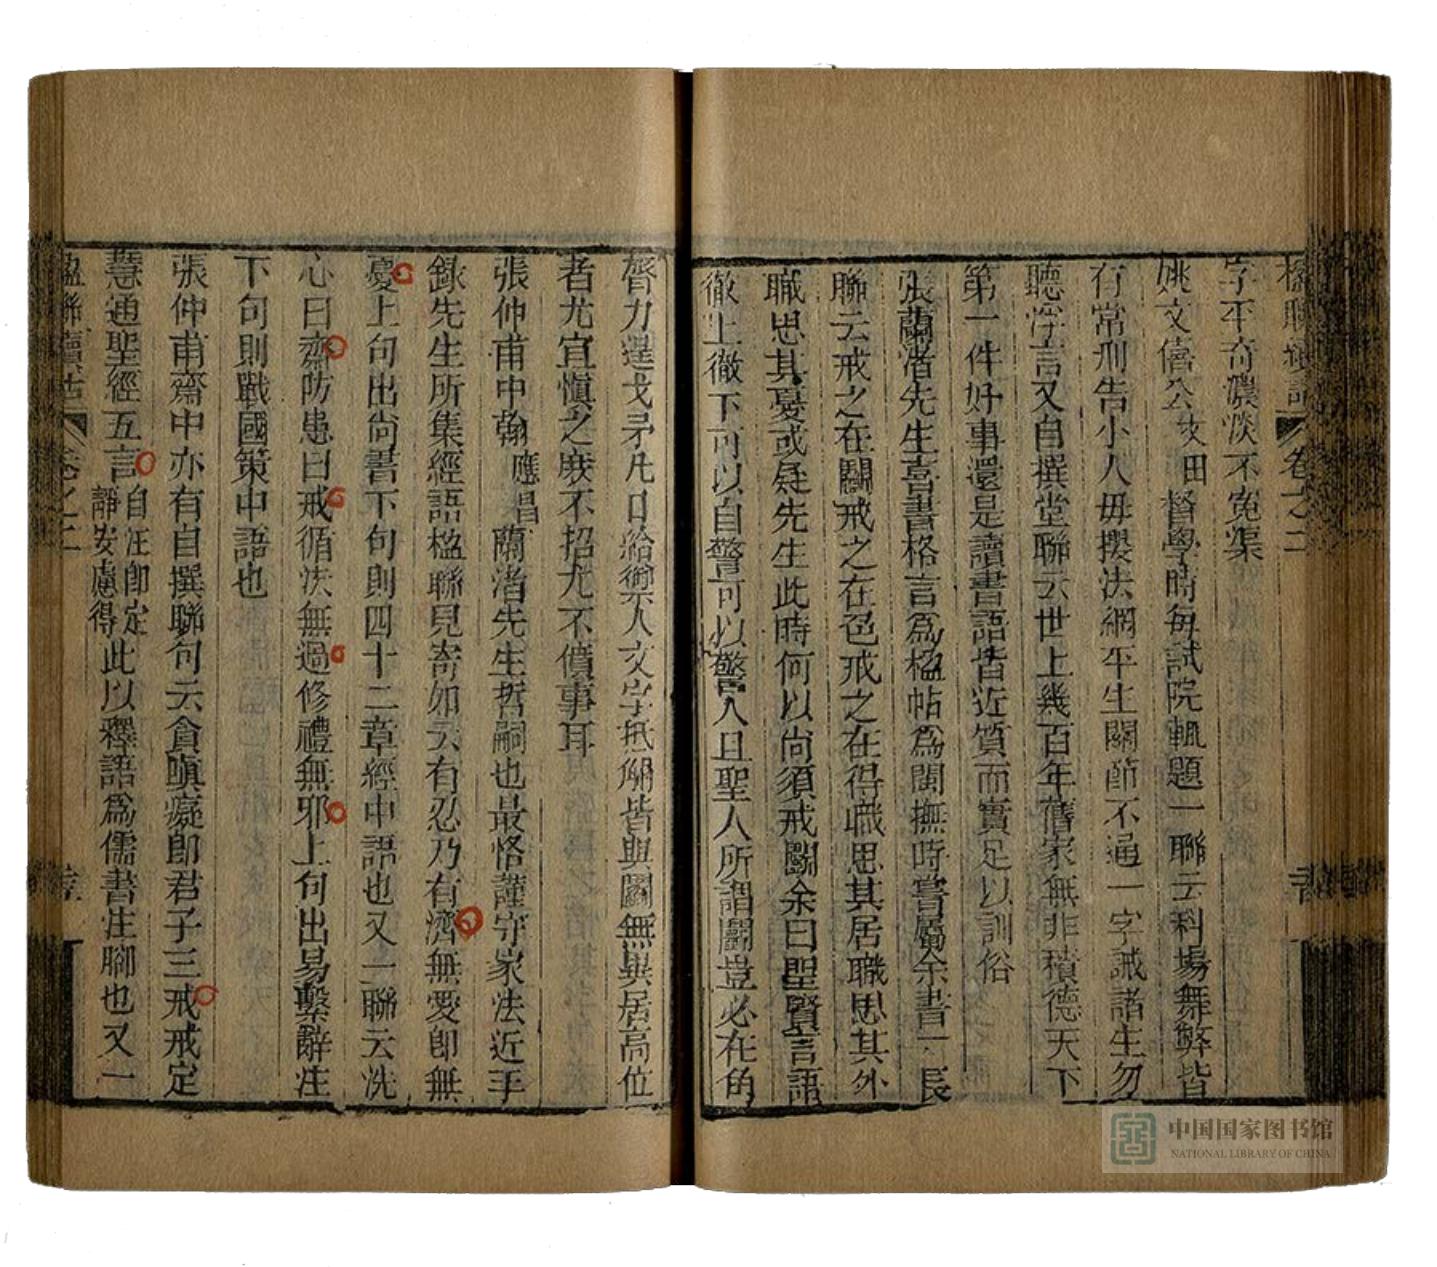 楹聯續話 卷之二
字平奇濃淡不冤渠
姚文僖公文田督學時每試院輒題一聯云科場舞弊皆
有常刑告小人毋攖法網平生關節不通一字誡諸生勿
聽浮言又自撰堂聯云世上幾百年舊家無非積德天下
第一件好事還是讀書語皆近質而實足以訓俗
張蘭渚先生喜書格言為楹帖為閩撫時嘗屬余書一長
聯云戒之在鬬戒之在色戒之在得職思其居職思其外
職思其憂或疑先生此時何以尚須戒鬬余曰聖賢言語
徹上徹下可以自警可以警人且聖人所謂鬬豈必在角
膂力逞戈矛凡口給禦人文字抵觸皆與鬬無異居高位
者尤宜慎之庶不招尤不僨事耳
張仲甫中翰應昌蘭渚先生哲嗣也最恪謹守家法近手
錄先生所集經語楹聯見寄如云有忍乃有濟無愛即無
憂上句出尚書下句則四十二章經中語也又一聯云洗
心曰齋防患曰戒循法無過修禮無邪上句出易繫辭注
下句則戰國策中語也
張仲甫齋中亦有自撰聯句云貪嗔癡即君子三戒戒定
慧通聖經五言自注即定靜安慮得此以釋語為儒書注腳也又一
楹聯續話 卷之二